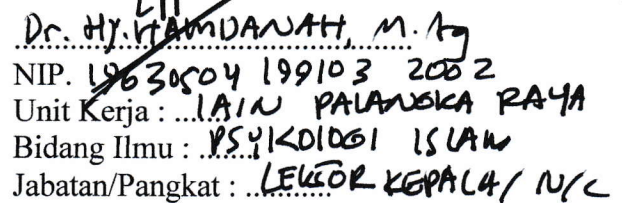 Dr. Hj. HAMDANAH, M.Ag
NIP. 19630504 199103 2002
Unit Kerja : IAIN PALANGKA RAYA
Bidang Ilmu : PSYKOLOGI ISLAM
Jabatan/Pangkat : LEKTOR KEPALA/ IV/C